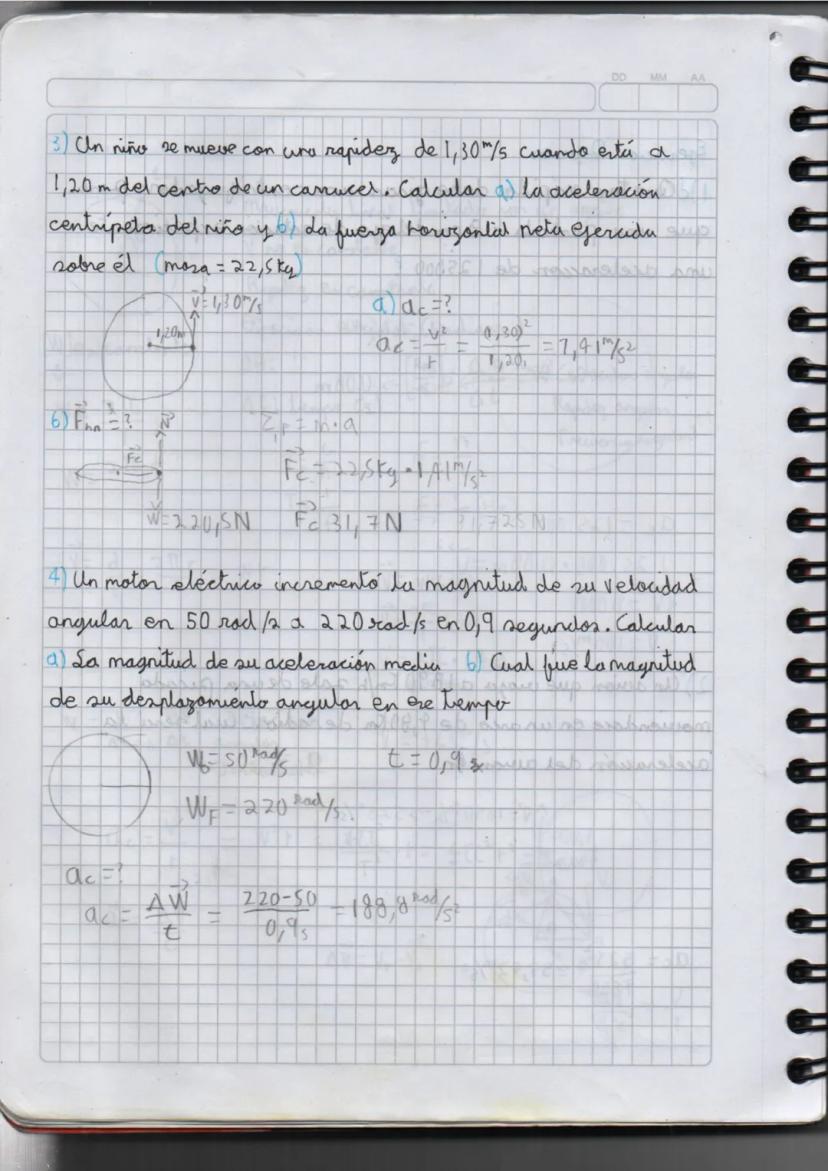 DD MM AA
3) Un niño se mueve con una rapidez de 1,30 m/s cuando está a
1,20 m del centro de un carrucel. Calcular a) la aceleración
centrípeta del niño y b) La fuerza horizontal neta ejercida
sobre él (masa = 22,5 kg)
V⃗=1,30 m/s
1,20m
a) ac=?
ac = v²/r = (1,30)²/1,20 = 1,41 m/s²
b) =? N⃗
F⃗c
= m·a
F⃗c = 22,5 kg · 1,41 m/s²
W⃗=220,5N F⃗c 31,7 N
4) Un motor eléctrico incrementó la magnitud de su velocidad
angular en 50 rad/s a 220 rad/s en 0,9 segundos. Calcular
a) La magnitud de su aceleración media b) Cual fue la magnitud
de su desplazamiento angular en ese tiempo
W₀=50 rad/s t = 0,9 s
WF = 220 rad/s
ac=?
ac = ΔW⃗/t = 220-50/0,9s = 188,8 rad/s²